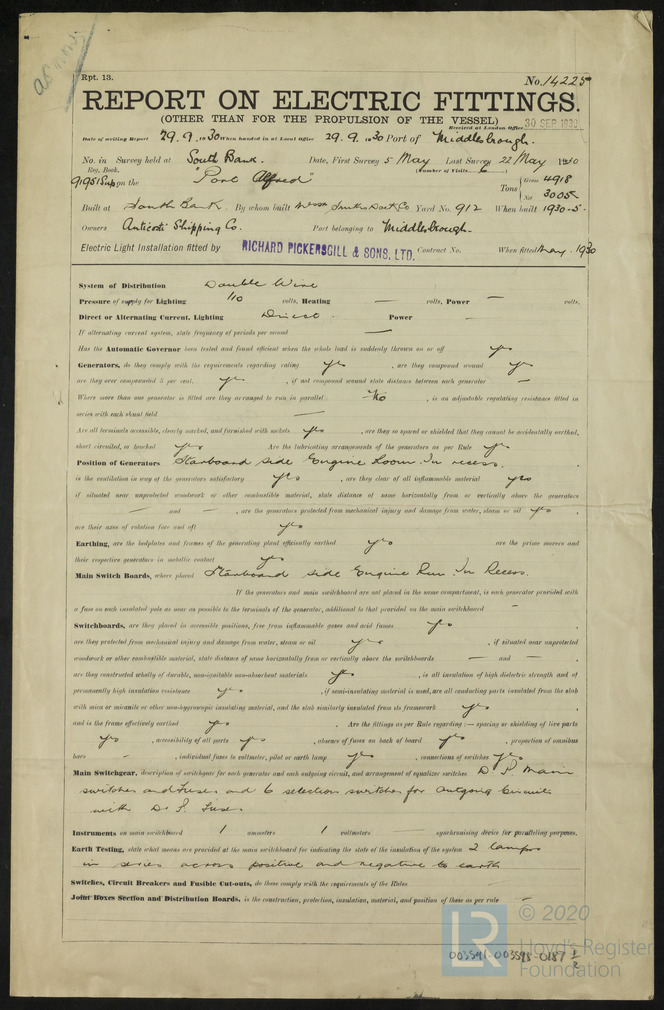 Rpt. 13.
No. 14225
REPORT ON ELECTRIC FITTINGS.
(OTHER THAN FOR THE PROPULSION OF THE VESSEL)
Received at London Office 30 SEP 1930
Date of writing Report 29.9.1930 When handed in at Local Office 29.9.1930 Port of Middlesbrough.
No. in Survey held at South Bank. Date, First Survey 5 May Last Survey 22 May 1930
Reg. Book. (Number of Visits 6)
91951 Sup on the "Port Alfred" Tons { Gross 4918
Net 3005
Built at South Bank By whom built Messrs Smiths Dock Co Yard No. 912 When built 1930-5-
Owners Anticosti Shipping Co. Port belonging to Middlesbrough-
Electric Light Installation fitted by RICHARD PICKERSGILL & SONS, LTD. Contract No. When fitted May. 1930
System of Distribution Double Wire
Pressure of supply for Lighting 110 volts, Heating — volts, Power — volts.
Direct or Alternating Current, Lighting Direct. Power —
If alternating current system, state frequency of periods per second —
Has the Automatic Governor been tested and found efficient when the whole load is suddenly thrown on or off yes
Generators, do they comply with the requirements regarding rating yes, are they compound wound yes
are they over compounded 5 per cent. yes, if not compound wound state distance between each generator —
Where more than one generator is fitted are they arranged to run in parallel. No, is an adjustable regulating resistance fitted in
series with each shunt field —
Are all terminals accessible, clearly marked, and furnished with sockets yes, are they so spaced or shielded that they cannot be accidentally earthed,
short circuited, or touched yes Are the lubricating arrangements of the generators as per Rule yes
Position of Generators Starboard side Engine Room. In recess.
is the ventilation in way of the generators satisfactory yes, are they clear of all inflammable material yes
if situated near unprotected woodwork or other combustible material, state distance of same horizontally from or vertically above the generators
— and —, are the generators protected from mechanical injury and damage from water, steam or oil yes,
are their axes of rotation fore and aft yes
Earthing, are the bedplates and frames of the generating plant efficiently earthed yes are the prime movers and
their respective generators in metallic contact yes
Main Switch Boards, where placed Starboard side Engine Rm. In Recess.
If the generators and main switchboard are not placed in the same compartment, is each generator provided with
a fuse on each insulated pole as near as possible to the terminals of the generator, additional to that provided on the main switchboard —
Switchboards, are they placed in accessible positions, free from inflammable gases and acid fumes yes,
are they protected from mechanical injury and damage from water, steam or oil yes, if situated near unprotected
woodwork or other combustible material, state distance of same horizontally from or vertically above the switchboards — and —,
are they constructed wholly of durable, non-ignitable non-absorbent materials yes, is all insulation of high dielectric strength and of
permanently high insulation resistance yes, if semi-insulating material is used, are all conducting parts insulated from the slab
with mica or micanite or other non-hygroscopic insulating material, and the slab similarly insulated from its framework yes,
and is the frame effectively earthed yes. Are the fittings as per Rule regarding:— spacing or shielding of live parts
yes, accessibility of all parts yes, absence of fuses on back of board yes, proportion of omnibus
bars —, individual fuses to voltmeter, pilot or earth lamp yes, connections of switches yes
Main Switchgear, description of switchgear for each generator and each outgoing circuit, and arrangement of equalizer switches D.P. Main
switches and Fuses and 6 selection switches for outgoing circuits
with D.P. Fuses
Instruments on main switchboard 1 ammeters 1 voltmeters — synchronising device for paralleling purposes.
Earth Testing, state what means are provided at the main switchboard for indicating the state of the insulation of the system 2 lamps
in series across positive and negative to earth
Switches, Circuit Breakers and Fusible Cut-outs, do these comply with the requirements of the Rules
Joint Boxes Section and Distribution Boards, is the construction, protection, insulation, material, and position of these as per rule —
© 2020
LR
Lloyd's Register
Foundation
003591-003598-0187 1/2